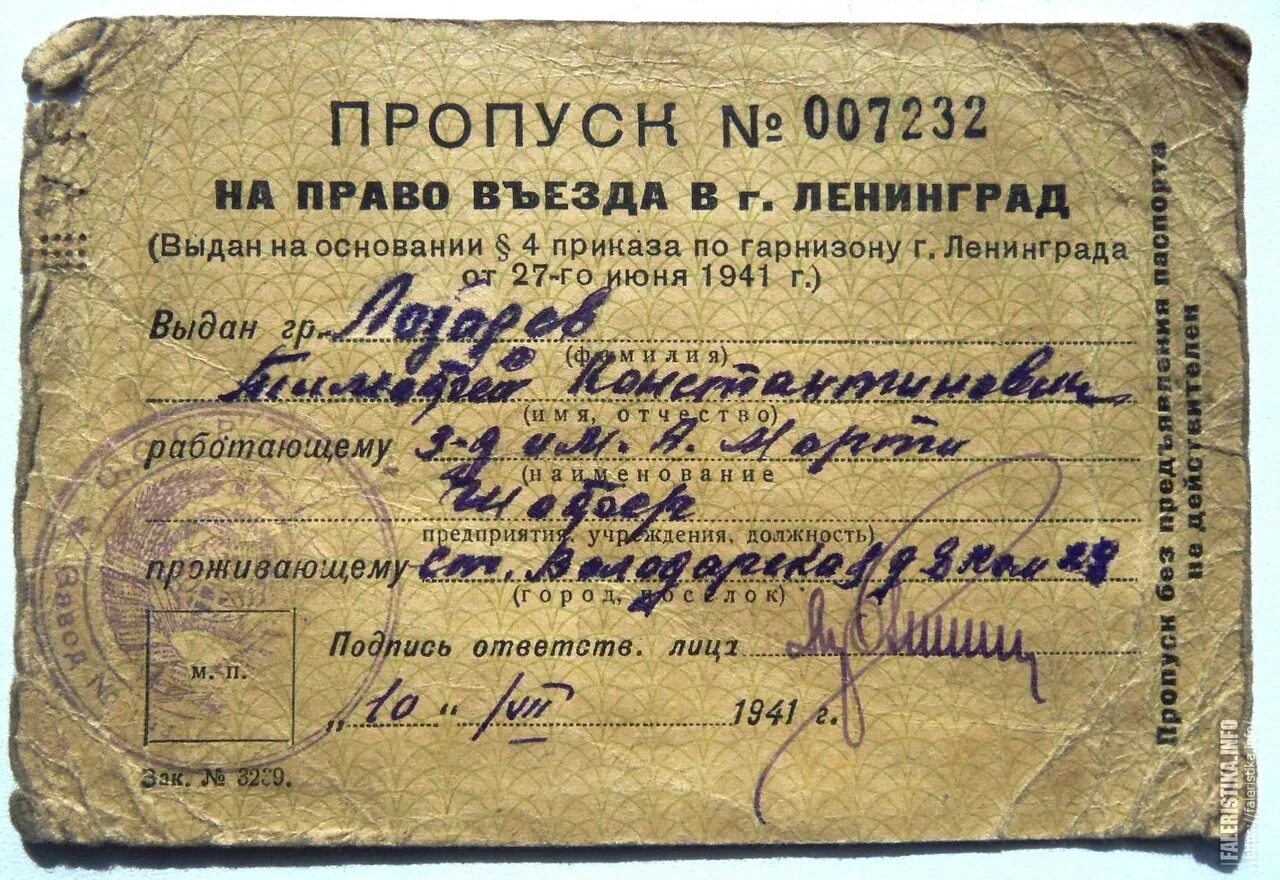 ПРОПУСК № 007232
НА ПРАВО ВЪЕЗДА В г. ЛЕНИНГРАД
(Выдан на основании § 4 приказа по гарнизону г. Ленинграда
от 27-го июня 1941 г.)
Выдан гр. Лазарев
(фамилия)
Тимофей Константинович
(имя, отчество)
работающему з-д им. А. Марти
(наименование
Шофер
предприятия, учреждения, должность)
проживающему ст. Володарская д 8 ком
(город, поселок)
Подпись ответств. лица
м. п.
„10“ VII 1941 г.
Зак. № 3239.
Пропуск без предъявления паспорта
не действителен
Завод №
FALERISTIKA.INFO
https://faleristika.info/